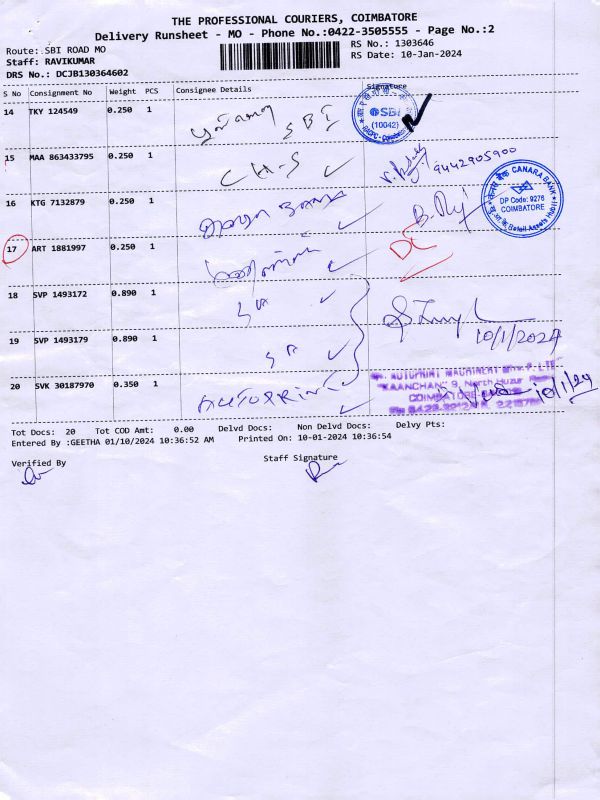 THE PROFESSIONAL COURIERS, COIMBATORE
Delivery Runsheet - MO - Phone No.:0422-3505555 - Page No.:2
Route: SBI ROAD MO
RS No.: 1303646
Staff: RAVIKUMAR
RS Date: 10-Jan-2024
DRS No.: DCJB130364602
S No Consignment No Weight PCS Consignee Details Signature
14 TKY 124549 0.250 1
SBI
SBI
(10042)
15 MAA 863433795 0.250 1
CH-S
9442905900
16 KTG 7132879 0.250 1
CANARA BANK
DP Code: 9276
COIMBATORE
Retail Assets Hub
17 ART 1881997 0.250 1
DC
18 SVP 1493172 0.890 1
10/1/2024
19 SVP 1493179 0.890 1
20 SVK 30187970 0.350 1
AUTOPRINT
AUTOPRINT MACHINERY
"KAANCHAN" 9, North Huzur
COIMBATORE
10/1/24
Tot Docs: 20 Tot COD Amt: 0.00 Delvd Docs: Non Delvd Docs: Delvy Pts:
Entered By :GEETHA 01/10/2024 10:36:52 AM Printed On: 10-01-2024 10:36:54
Verified By
Staff Signature